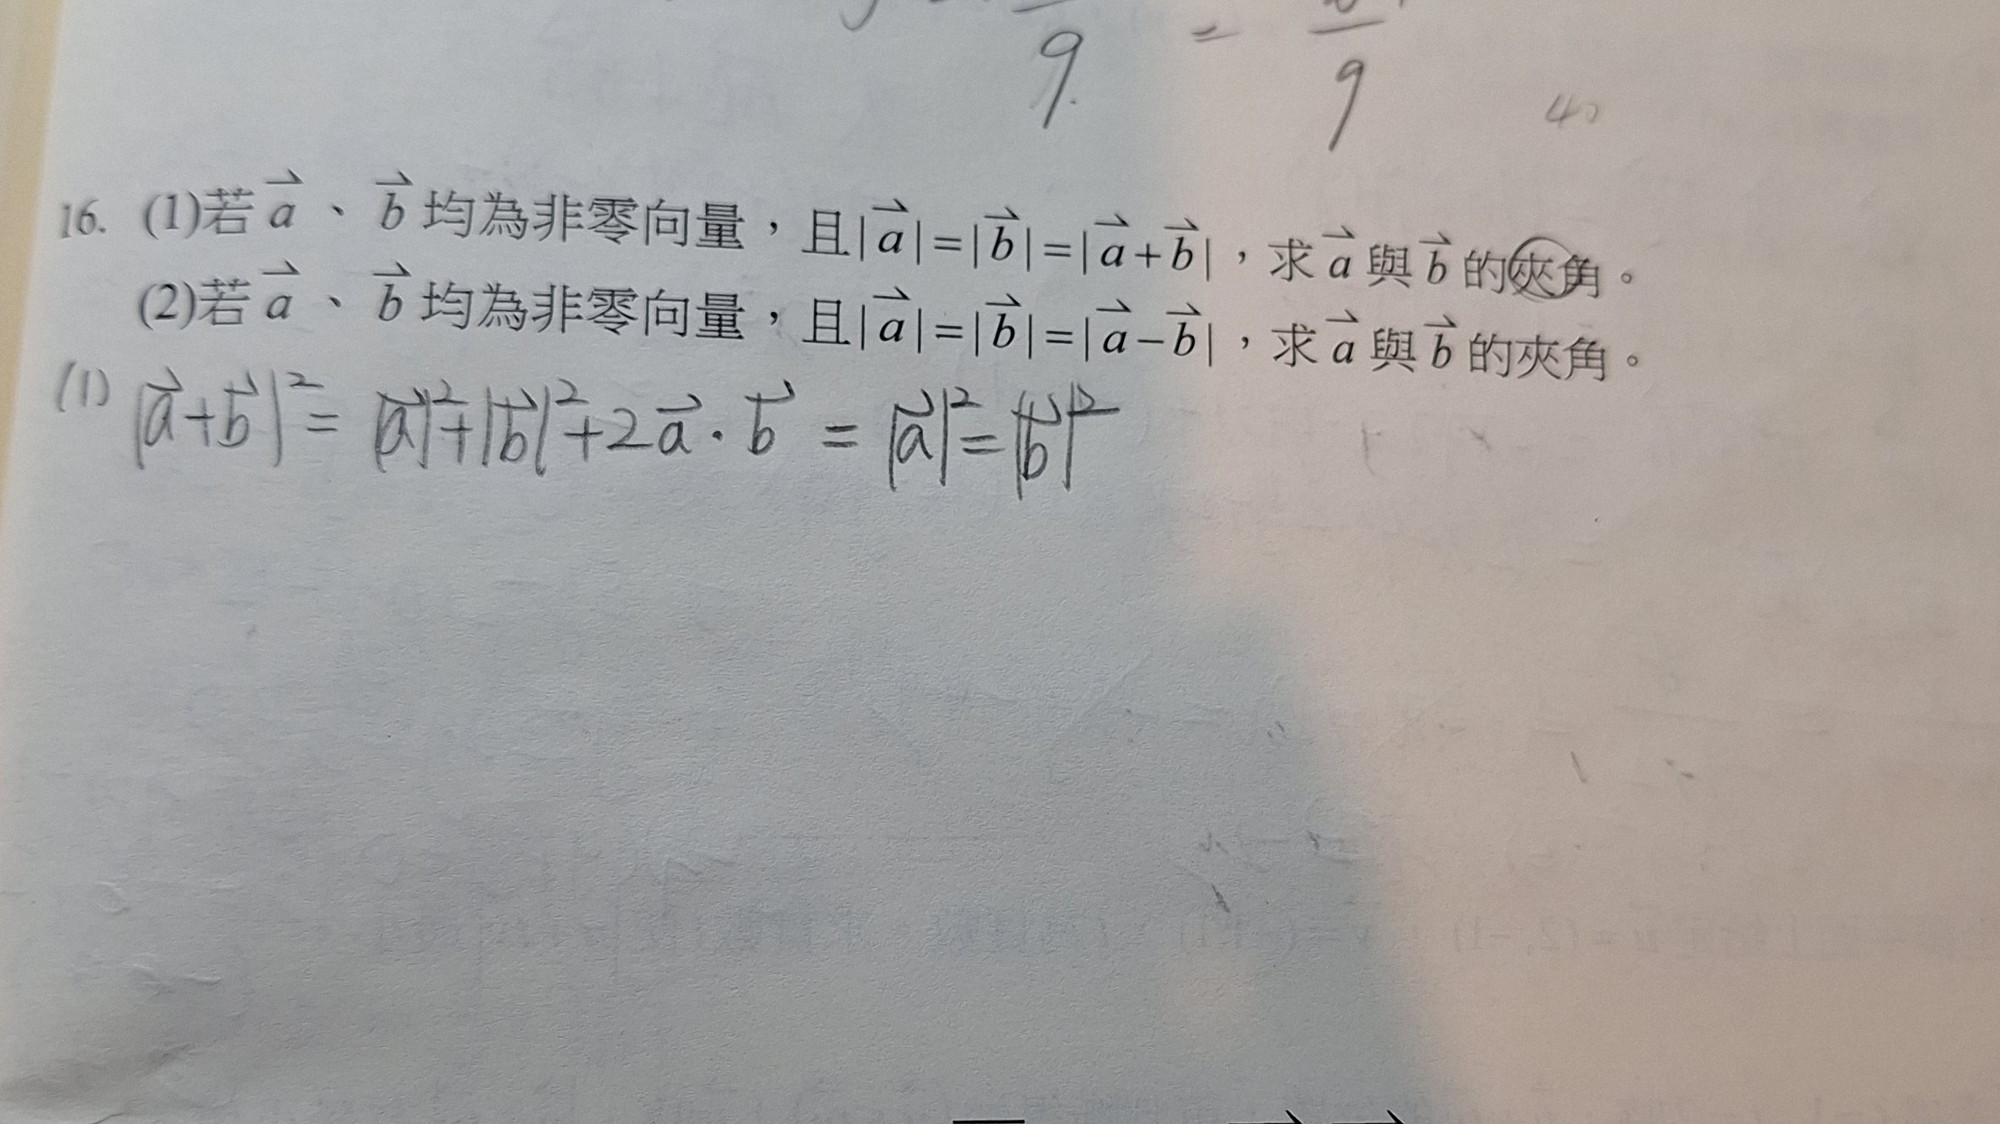 9
=
9
16. (1)若 a⃗ 、 b⃗ 均為非零向量，且|a⃗|=|b⃗|=|a⃗+b⃗|，求 a⃗ 與 b⃗ 的夾角。
(2)若 a⃗ 、 b⃗ 均為非零向量，且|a⃗|=|b⃗|=|a⃗−b⃗|，求 a⃗ 與 b⃗ 的夾角。
(1) |a⃗+b⃗|² = |a⃗|²+|b⃗|²+2a⃗·b⃗ = |a⃗|²=|b⃗|²